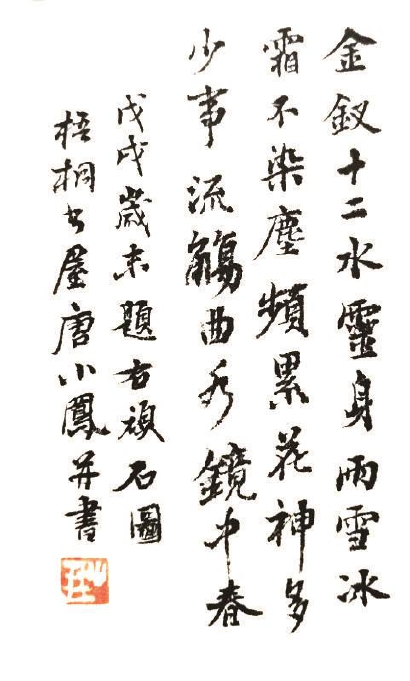 金釵十二水靈身雨雪冰
霜不染塵頻累花神多
少事流觴曲水鏡中春
戊戌歲末題右頑石圖
梧桐书屋唐小鳳并書